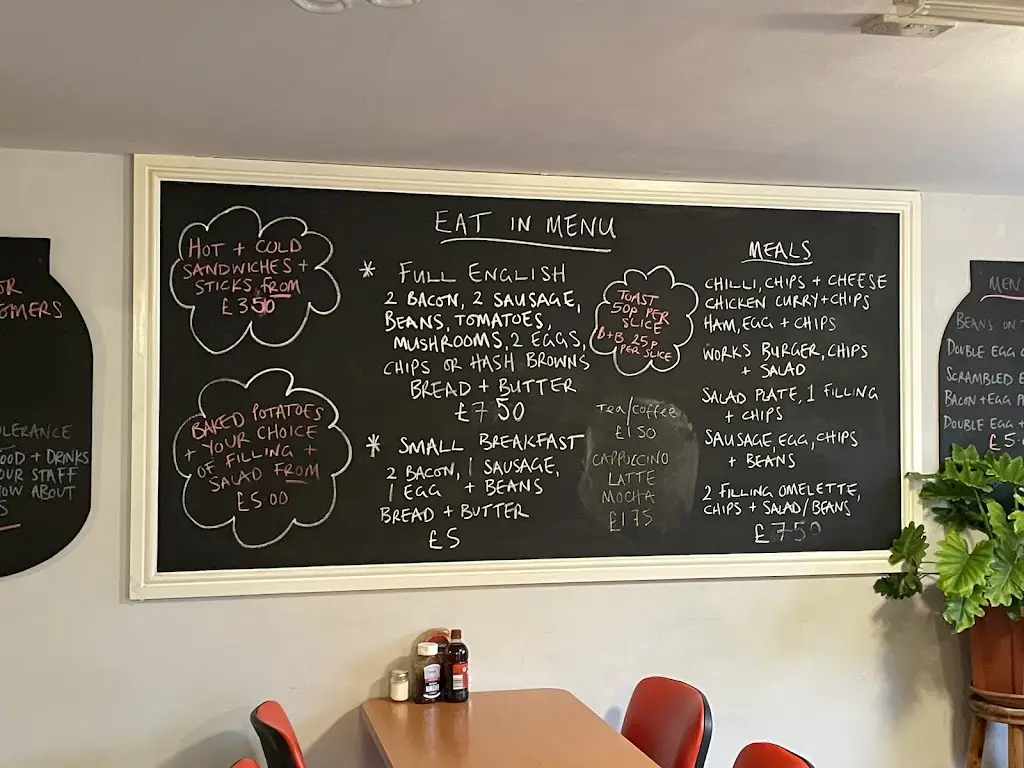 EAT IN MENU
HOT + COLD
SANDWICHES +
STICKS FROM
£3 50
BAKED POTATOES
+ YOUR CHOICE
OF FILLING +
SALAD FROM
£5 00
* FULL ENGLISH
2 BACON, 2 SAUSAGE,
BEANS, TOMATOES,
MUSHROOMS, 2 EGGS,
CHIPS OR HASH BROWNS
BREAD + BUTTER
£7 50
* SMALL BREAKFAST
2 BACON, 1 SAUSAGE,
1 EGG + BEANS
BREAD + BUTTER
£5
TOAST
50P PER
SLICE
B+B 25P
PER SLICE
TEA/COFFEE
£1 50
CAPPUCCINO
LATTE
MOCHA
£1 75
MEALS
CHILLI, CHIPS + CHEESE
CHICKEN CURRY + CHIPS
HAM, EGG + CHIPS
WORKS BURGER, CHIPS
+ SALAD
SALAD PLATE, 1 FILLING
+ CHIPS
SAUSAGE, EGG, CHIPS
+ BEANS
2 FILLING OMELETTE,
CHIPS + SALAD/BEANS
£7 50
OR
OMERS
LERANCE
OOD + DRINKS
OUR STAFF
OW ABOUT
S
MEN
BEANS ON T
DOUBLE EGG
SCRAMBLED E
BACON + EGG
DOUBLE EGG +
£5